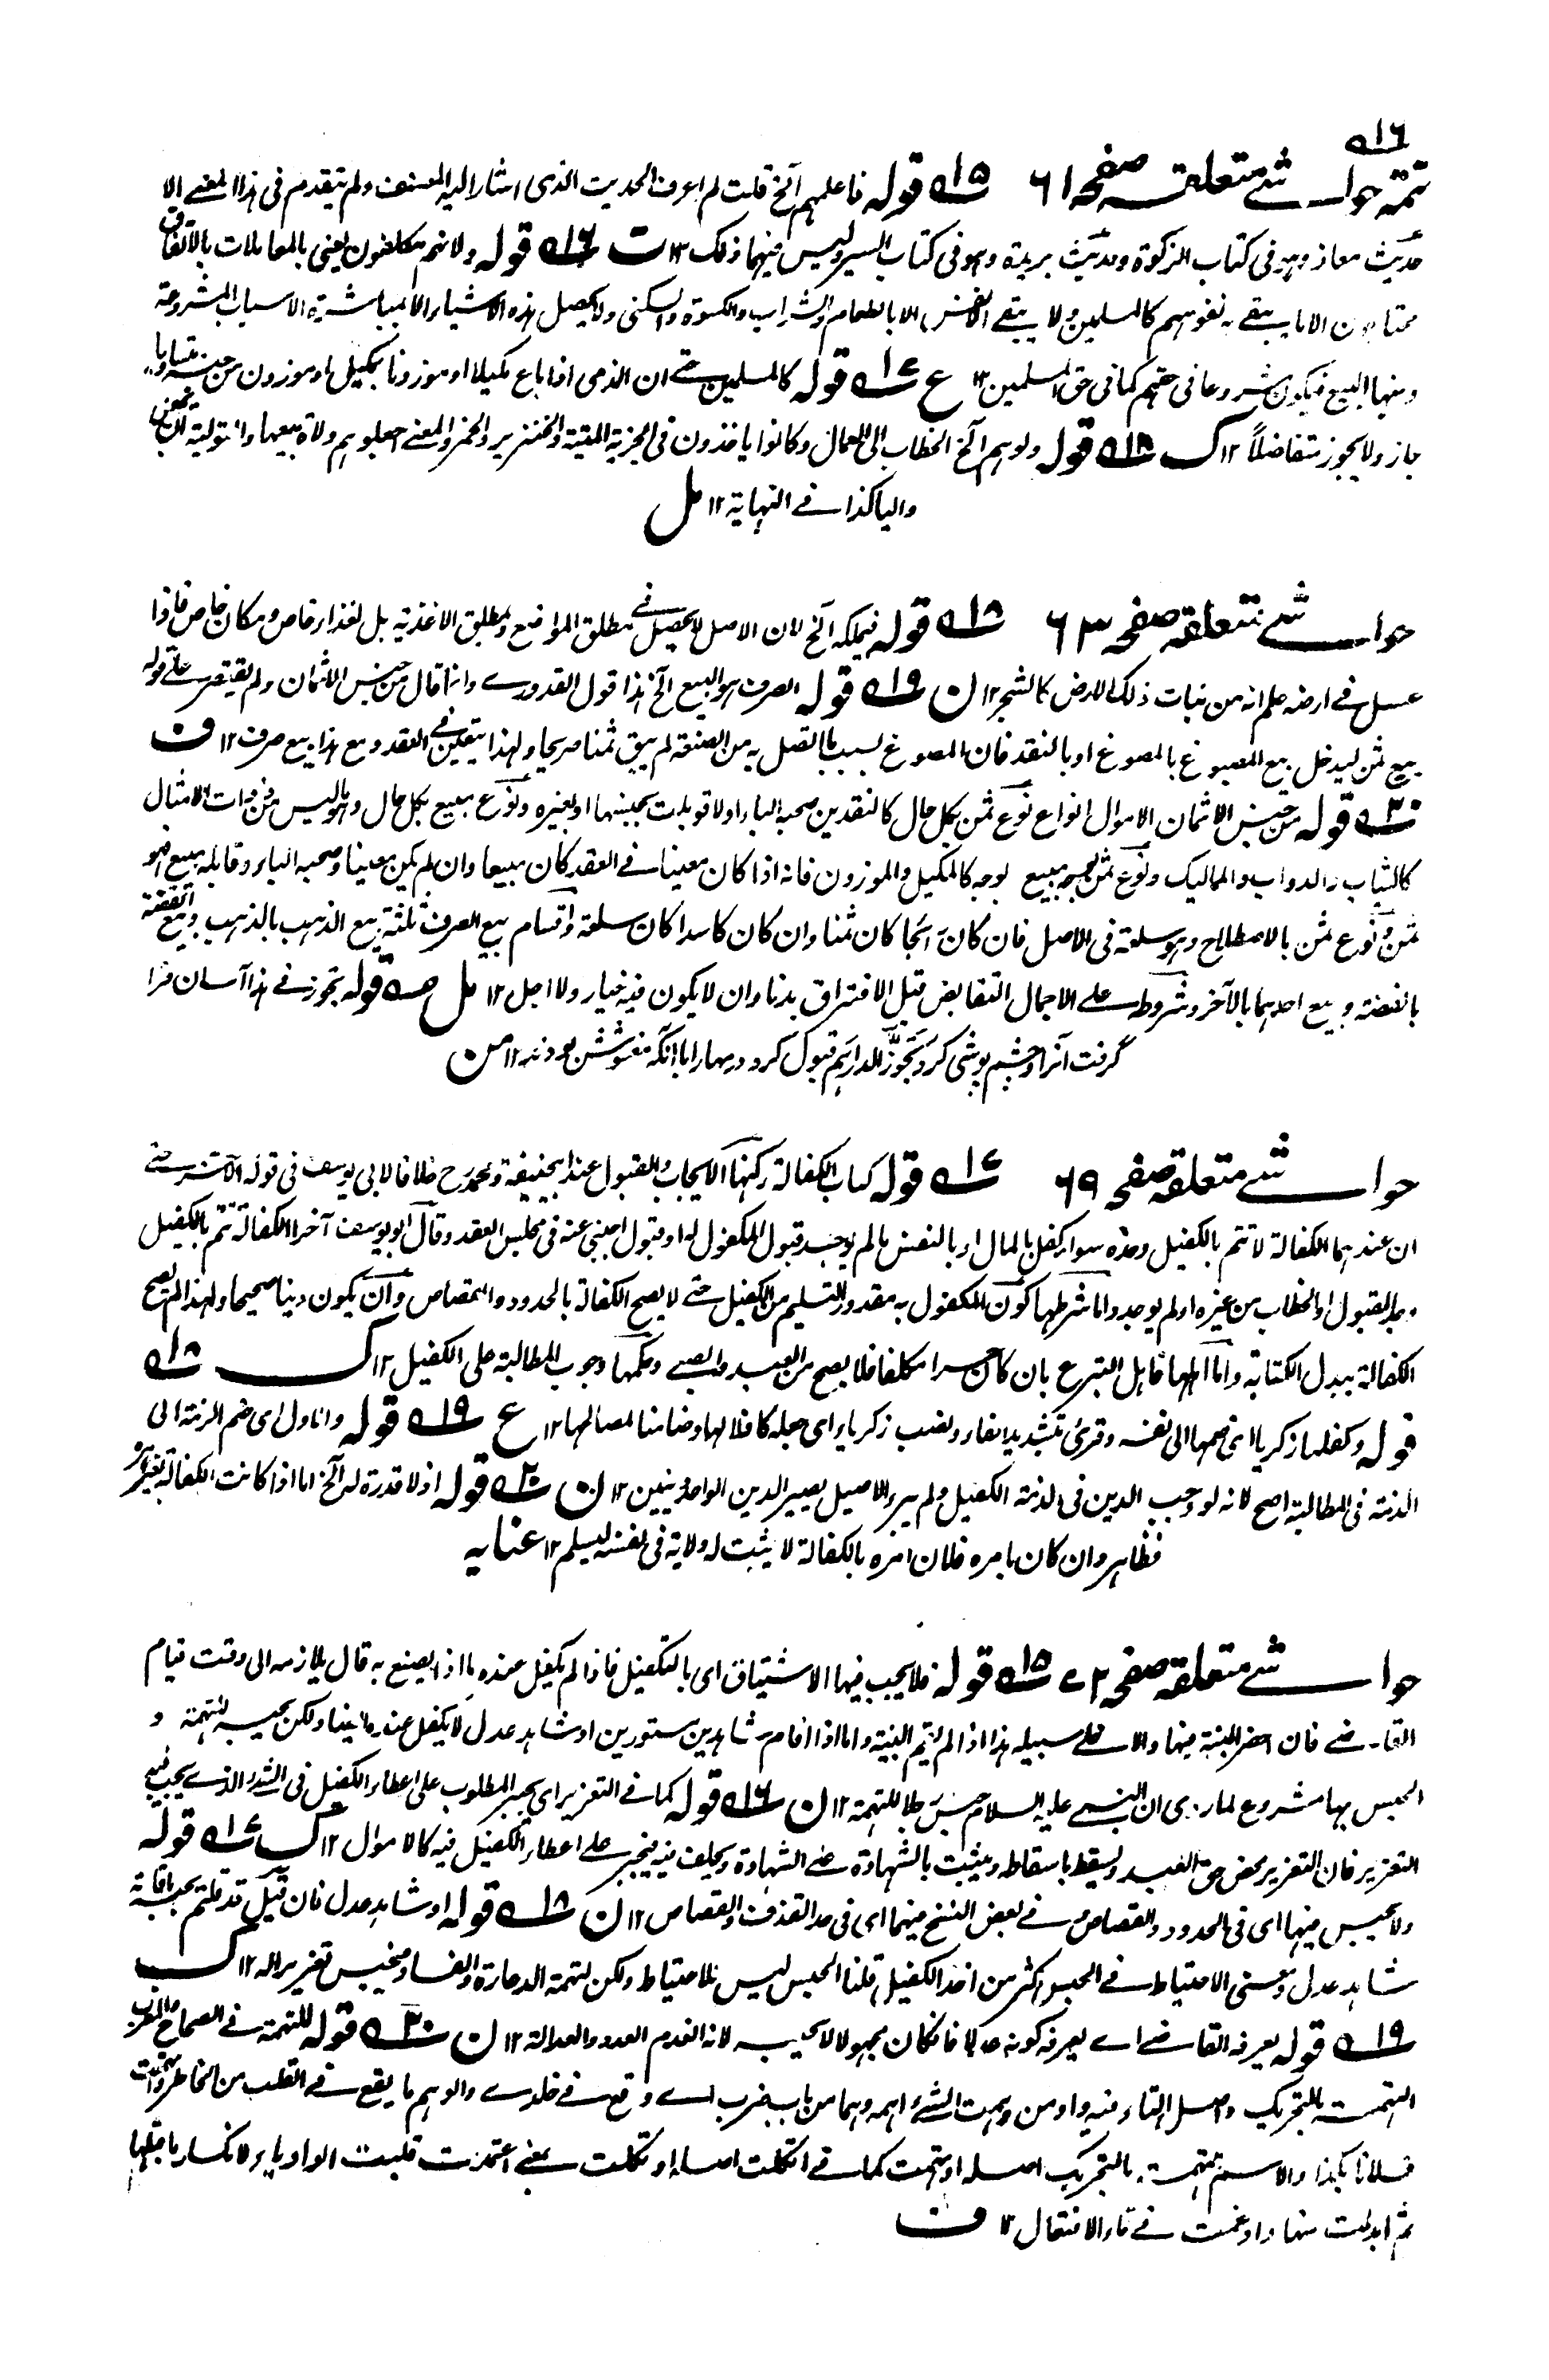 ٥١٦
تتمة حواشی متعلقہ صفحہ ٦١ ١٥ قوله فاعلمهم الخ قلت لم اعرف الحديث الذی اشار اليه المصنف ولم يتقدم فی هذا المعنے الا
حديث معاذ وهو فی كتاب الزكوة وحديث بريدة وهو فی كتاب السير وليس فيهما ذلك ١٢ ت ١٦ قوله ولانهم مكلفون يعنی بالمعاملات بالاتفاق
محتاجون الا ما يبقے به نفوسهم كالمسلمين ولا يبقے الانفس الا بالطعام والشراب والكسوة والسكنی ولا يحصل هذه الاشياء الا بمباشرة الاسباب المشروعة
ومنها البيع فيكون مشروعا فی حقهم كما فی حق المسلمين ١٢ ع ١٧ قوله كالمسلمين حتے ان الذمی اذا باع مكيلا او موزونا بمكيل او موزون من جنسه متساويا
جاز ولا يجوز متفاضلا ١٢ ك ١٨ قوله ولوهم الخ الخطاب الی العمال وكانوا ياخذون فی الجزية الميتة والخنزير والخمر والمعنے اجعلوهم ولاة بيعها والتولية
واليا كذا فے النهاية ١٢ مل
حواشی متعلقہ صفحہ ٦٣ ١٨ قوله فيملكه الخ لان الاصل لا يحصل فے مطلق المواضع ومطلق الاغذية بل لغذاء خاص ومكان خاص فاذا
عسل فے ارضه علم انه من نبات ذلك الارض كالشجر ١٢ ن ١٩ قوله الصرف هو البيع الخ هذا قول القدورے وانما قال من جنس الاثمان ولم يقتصر علے قوله
بيع ثمن ليدخل بيع المصوغ بالمصوغ او بالنقد فان المصوغ بسبب ما اتصل به من الصنعة لم يبق ثمنا صريحا ولهذا يتعين فے العقد ومع هذا بيعه صرف ١٢ ف
٢٠ قوله من جنس الاثمان الاموال انواع نوع ثمن بكل حال كالنقدين صحبه الباء اولا قوبلت بجنسها او بغيره ونوع مبيع بكل حال وهو ما ليس من ذوات الامثال
كالثياب والدواب والمماليك ونوع ثمن بوجه مبيع بوجه كالمكيل والموزون فانه اذا كان معينا فے العقد كان مبيعا وان لم يكن معينا وصحبه الباء وقابله مبيع فهو
ثمن ونوع ثمن بالاصطلاح وهو سلعة فی الاصل فان كان رائجا كان ثمنا وان كان كاسدا كان سلعة واقسام بيع الصرف ثلثة بيع الذهب بالذهب وبيع الفضة
بالفضة وبيع احدهما بالآخر وشروطه علے الاجمال التقابض قبل الافتراق بدنا وان لا يكون فيه خيار ولا اجل ١٢ مل قوله تجوز فے هذا آسان فرا
گرفت آنرا وچشم پوشی كرد وتجوز الدراهم قبول كرد درمها را با آنكه مغشوشش بودند ١٢ من
حواشی متعلقہ صفحہ ٦٩ ١٧ قوله كتاب الكفالة ركنها الايجاب والقبول عند ابی حنيفة ومحمد رح خلافا لابی يوسف فی قوله الآخر حتے
ان عندهما الكفالة لا تتم بالكفيل وحده سواء كفل بالمال او بالنفس ما لم يوجد قبول المكفول له او قبول اجنبی عنه فی مجلس العقد وقال ابو يوسف آخرا الكفالة تتم بالكفيل
وجد القبول او الخطاب من غيره او لم يوجد واما شرطها كون المكفول به مقدور التسليم من الكفيل حتے لا يصح الكفالة بالحدود والقصاص وان يكون دينا صحيحا ولهذا لم تصح
الكفالة ببدل الكتابة واما اهلها فاهل التبرع بان كان حرا مكلفا فلا يصح من العبد والصبے وحكمها وجوب المطالبة علی الكفيل ١٢ ك ١٨
قوله وكفلها زكريا ای ضمها الی نفسه وقرئ بتشديد الفاء ونصب زكرياء ای جعله كافلا لها وضامنا لمصالحها ١٢ ع ١٩ قوله والاول ای ضم الذمة الی
الذمة فی المطالبة اصح لانه لو وجب الدين فی ذمة الكفيل ولم يبرء الاصيل يصير الدين الواحد دينين ١٢ ن ٢٠ قوله اذ لا قدرة له الخ اما اذا كانت الكفالة بغير امره
فظاهر وان كان بامره فلان امره بالكفالة لا يثبت له ولاية فی نفسه ليسلم ١٢ عنايه
حواشی متعلقہ صفحہ ٧٢ ١٥ قوله فلا يجب فيها الاستيثاق ای بالتكفيل فاذا لم يكفل عنده ما اذا يصنع به قال يلازمه الی وقت قيام
القاضے فان احضر البينة فيها والا خلے سبيله هذا اذا لم يقم البينة واما اذا اقام شاهدين مستورين او شاهد عدل لا يكفل عنده ايضا ولكن يحبسه للتهمة و
الحبس بها مشروع لما روی ان النبے عليه السلام حبس رجلا للتهمة ١٢ ن ١٦ قوله كما فے التعزير ای يجبر المطلوب علی اعطاء الكفيل فی القدر الذے يجب فيه
التعزير فان التعزير محض حق العبد ويسقط باسقاطه ويثبت بالشهادة علے الشهادة ويحلف فيه فيجبر علے اعطاء الكفيل فيه كالاموال ١٢ ك ١٧ قوله
ولا يحبس فيها ای فی الحدود والقصاص وفے بعض النسخ فيهما ای فی حد القذف والقصاص ١٢ ن ١٨ قوله او شاهد عدل فان قيل قد قلتم يحبس باقامة
شاهد عدل ومعنی الاحتياط فے الحبس اكثر من اخذ الكفيل قلنا الحبس ليس للاحتياط ولكن لتهمة الدعارة والفساد فيحبس تعزيرا له ١٢ ك
١٩ قوله يعرفه القاضے اے يعرفه كونه عدلا فان كان مجهولا لا يحبسه لانه انعدم العدد والعدالة ١٢ ن ٢٠ قوله للتهمة فے الصحاح والمغرب
التهمة بالتحريك واصل التاء فيه واو من وهمت الشئ اهمه وهما من باب ضرب اے وقع فے خلدے والوهم ما يقع فے القلب من الخاطر واتهمت
فلانا بكذا والاسم التهمة بالتحريك اصله اوتهمت كما فے اتكلت اصله اوتكلت بمعنے اعتمدت قلبت الواو ياء لانكسار ما قبلها
ثم ابدلت منها وادغمت فے تاء الافتعال ١٢ ف